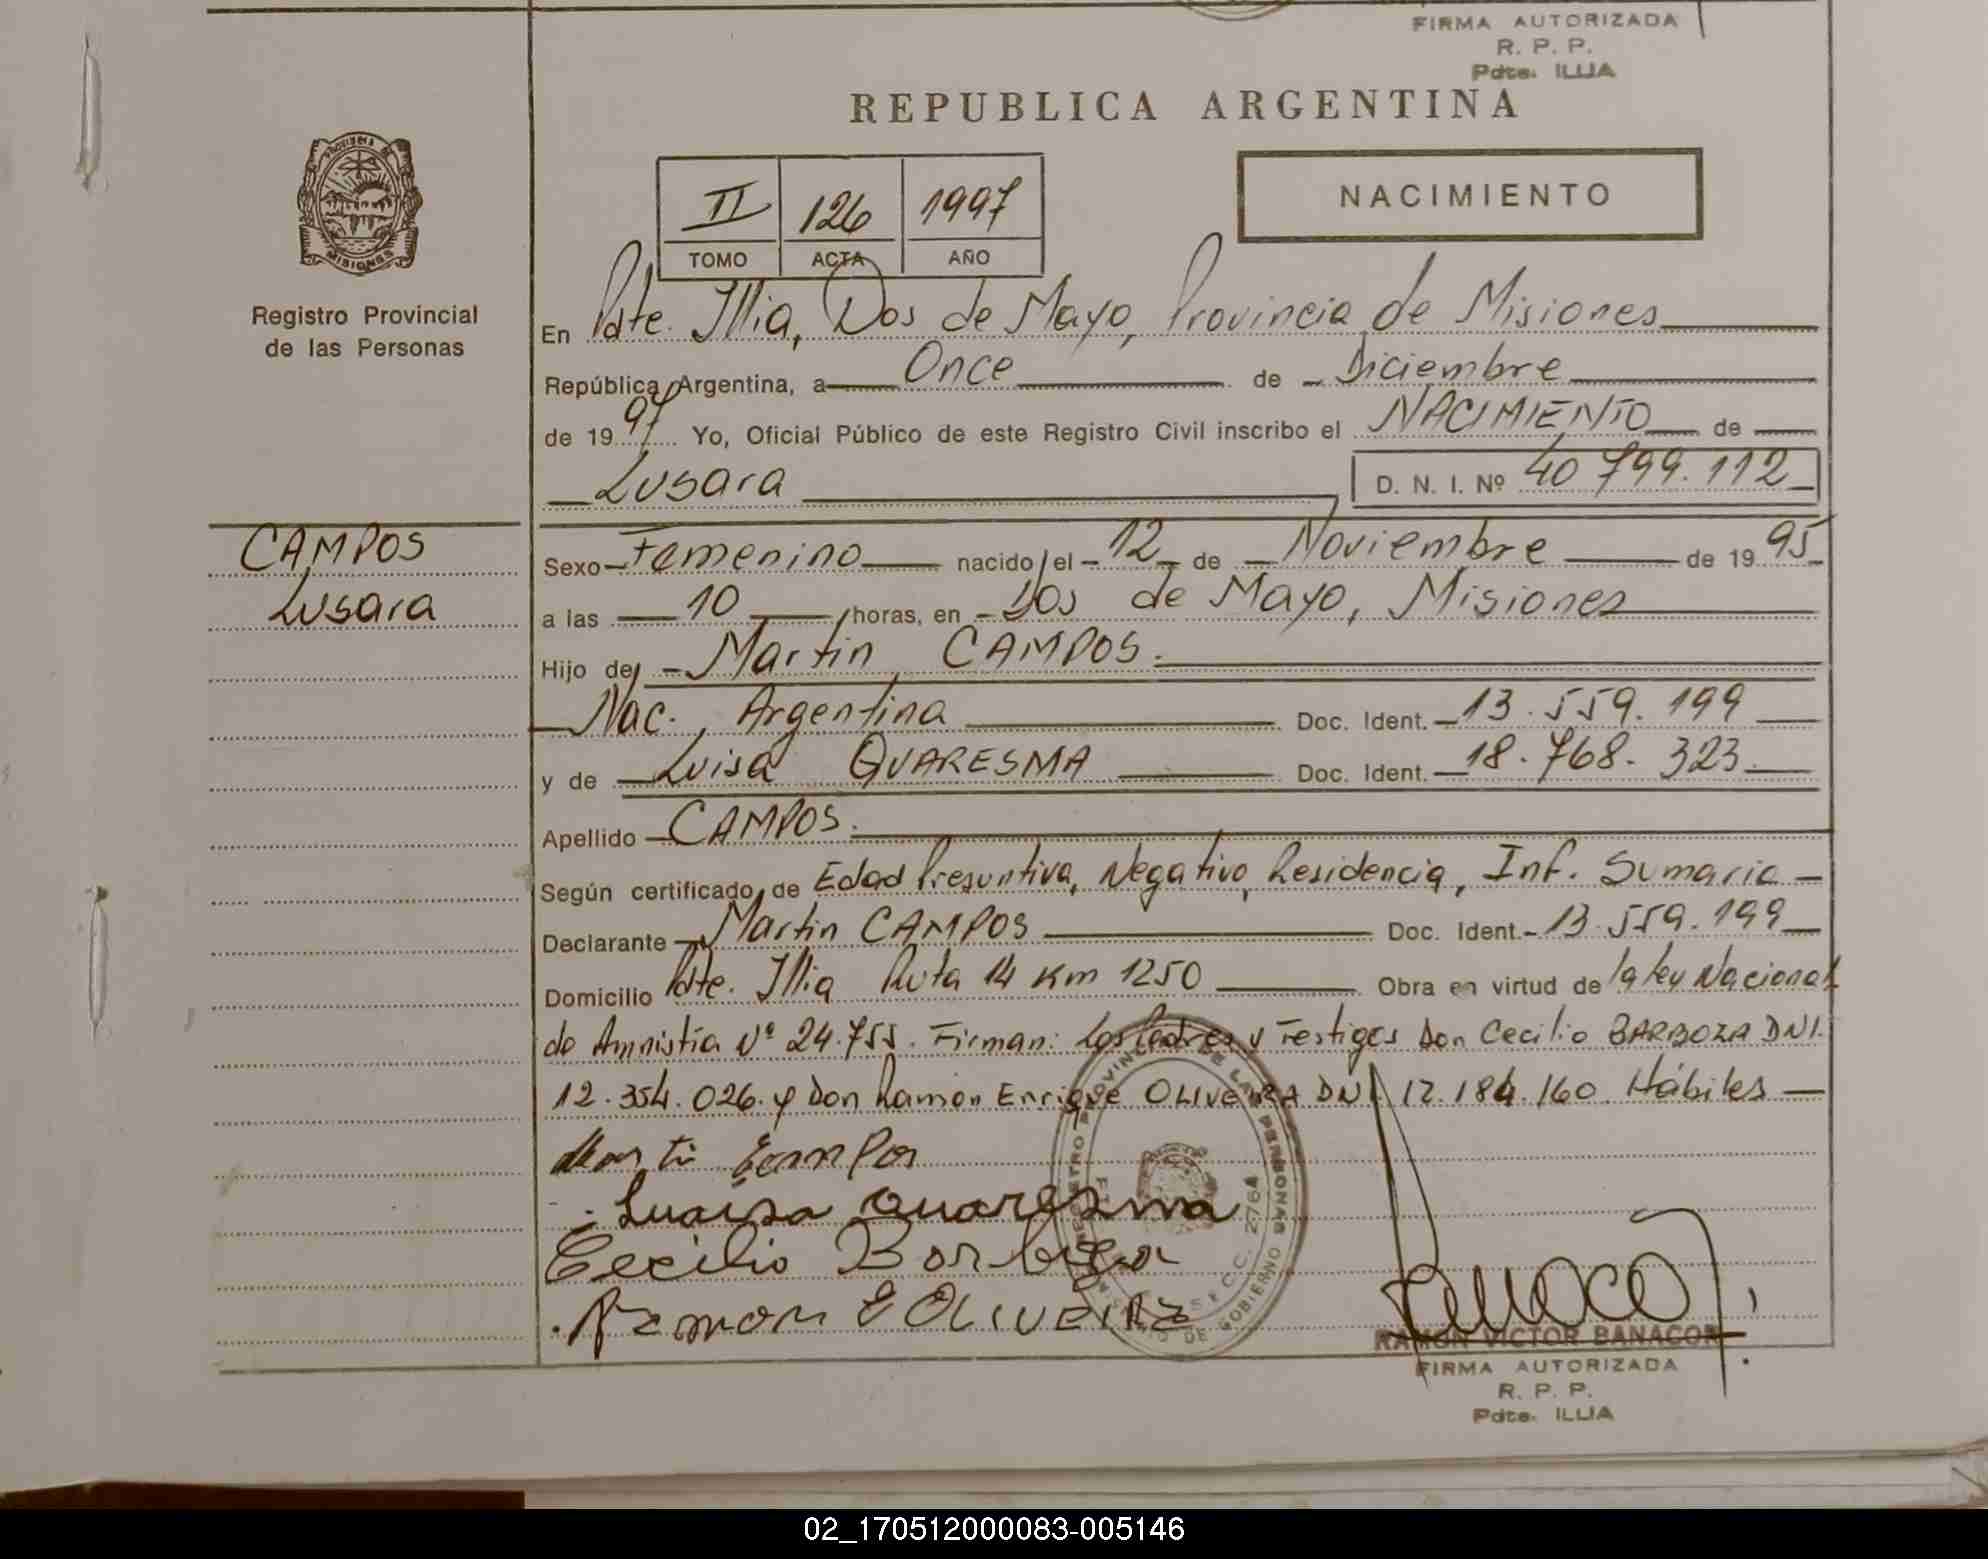 FIRMA AUTORIZADA
R. P. P.
Pdte. ILLIA
REPUBLICA ARGENTINA
PROVINCIA DE
MISIONES
Registro Provincial
de las Personas
II 126 1997
TOMO ACTA AÑO
NACIMIENTO
En Pdte. Illia, Dos de Mayo, Provincia de Misiones
República Argentina, a Once de Diciembre
de 1997 Yo, Oficial Público de este Registro Civil inscribo el NACIMIENTO de
Lusara D. N. I. Nº 40 799.112
CAMPOS
Lusara
Sexo Femenino nacido el 12 de Noviembre de 1995
a las 10 horas, en Dos de Mayo, Misiones
Hijo de Martin CAMPOS.
Nac. Argentina Doc. Ident. 13.559.199
y de Luisa QUARESMA Doc. Ident. 18.768.323
Apellido CAMPOS.
Según certificado de Edad Presuntiva, Negativo, Residencia, Inf. Sumaria
Declarante Martin CAMPOS Doc. Ident. 13.559.199
Domicilio Pdte. Illia Ruta 14 Km 1250 Obra en virtud de la ley Nacional
de Amnistía Nº 24.755. Firman: Los Padres y Testigos Don Cecilio BARBOZA DNI.
12.354.026. y Don Ramon Enrique OLIVEIRA DNI 12.184.160. Hábiles
Marti Campos
Luaisa Quaresma
Cecilio Borboza
Ramon E OLIVEIRA
REGISTRO PROVINCIAL DE LAS PERSONAS
2764
DE GOBIERNO
RAMON VICTOR BANACOR
FIRMA AUTORIZADA
R. P. P.
Pdte. ILLIA
02_170512000083-005146